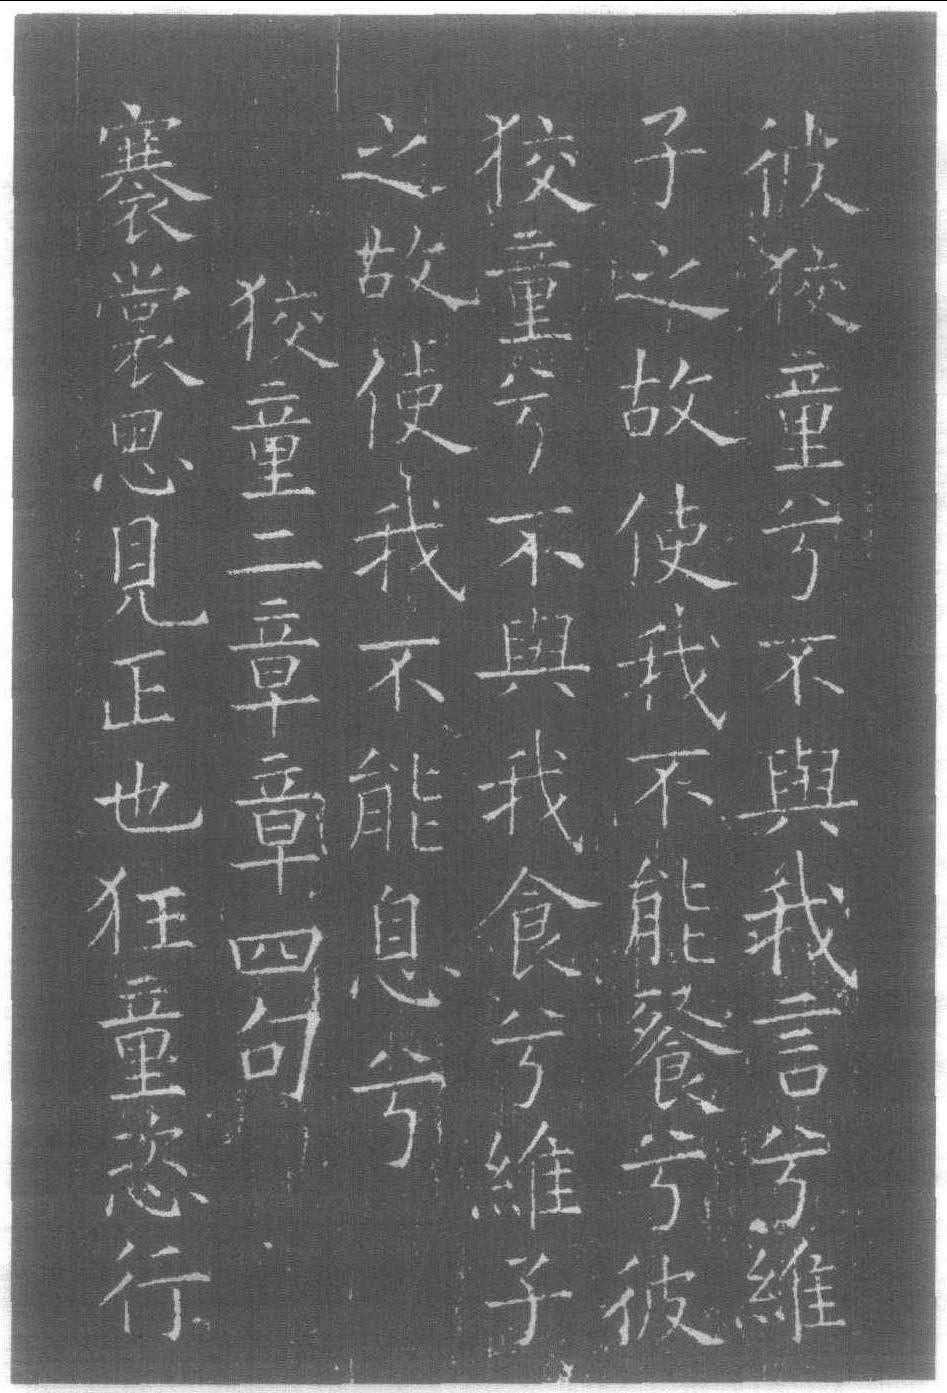 彼狡童兮不與我言兮維
子之故使我不能餐兮彼
狡童兮不與我食兮維子
之故使我不能息兮
狡童二章章四句
褰裳思見正也狂童恣行